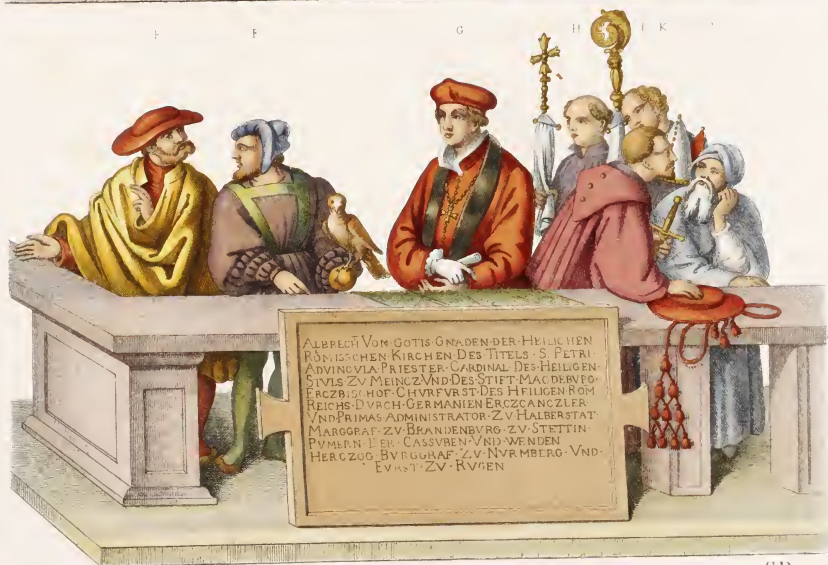 F G H I K
ALBRECH VON GOTIS GNADEN DER HEILICHEN
RÖMISSCHEN KIRCHEN DES TITELS · S · PETRI
ADVINCVLA PRIESTER CARDINAL DES HEILIGEN
STVLS ZV MEINCZ VND DES STIFT MAGDEBVRG
ERCZBISCHOF CHVRFVRST DES HEILIGEN ROM
REICHS DVRCH GERMANIEN ERCZCANCZLER
VND PRIMAS ADMINISTRATOR ZV HALBERSTAT
MARGGRAF ZV BRANDENBVRG ZV STETTIN
PVMERN DER CASSVBEN VND WENDEN
HERCZOG BVRGGRAF ZV NVRMBERG VND
FVRST ZV RVGEN